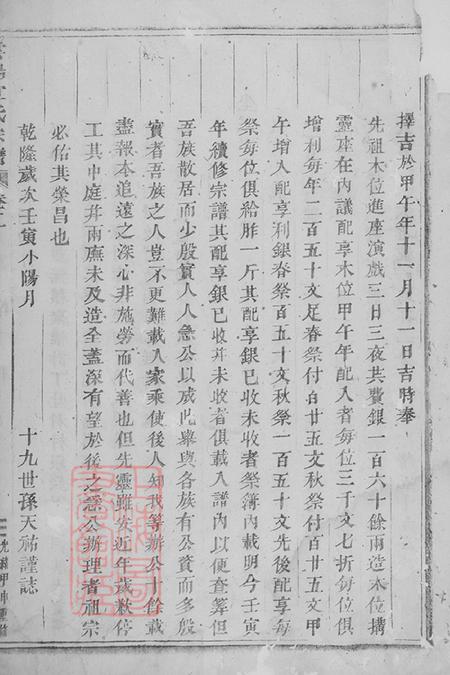 擇吉於甲午年十一月十一日吉時奉
先祖木位進座演戲三日三夜共費銀一百六十餘兩造木位搆
靈座在內議配享木位甲午年配入者每位三千文七折每位俱
增利每年二百五十文足春祭付百廿五文秋祭付百廿五文甲
午增入配享利銀春祭百五十文秋祭一百五十文先後配享每
祭每位俱給胙一斤其配享銀已收未收者祭簿內載明今壬寅
年續修宗譜其配享銀已收并未收者俱載入譜內以便查算但
吾族散居而少殷實人人急公以成此舉與各族有公資而多殷
實者吾族之人豈不更難載入家乘使後人知我等辦公十餘載
盡報本追遠之深心非施勞而代善也但先靈雖安近年歲歉停
工其中庭并兩廡未及造全葢深有望於後之急公辦理者祖宗
必佑其榮昌也
乾隆歲次壬寅小陽月
十九世孫天祐謹誌
氏宗譜 卷之一